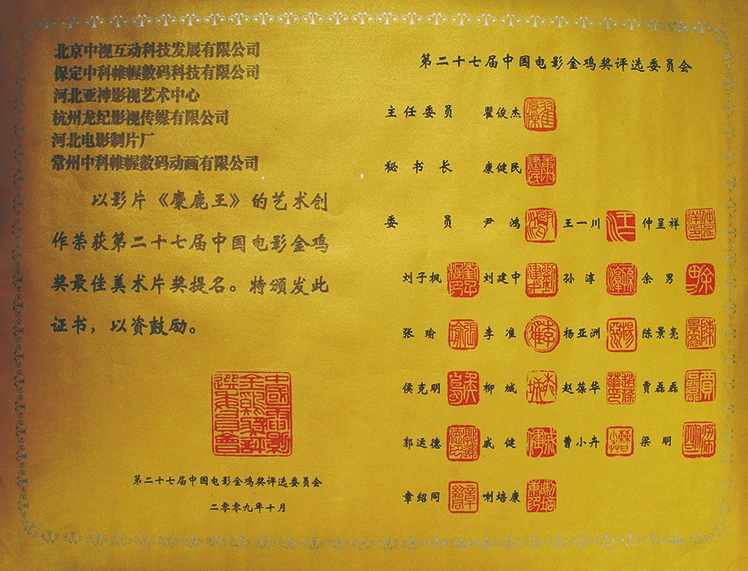 北京中视互动科技发展有限公司
保定中科帷幄数码科技有限公司
河北亚神影视艺术中心
杭州龙纪影视传媒有限公司
河北电影制片厂
常州中科帷幄数码动画有限公司
以影片《麋鹿王》的艺术创
作荣获第二十七届中国电影金鸡
奖最佳美术片奖提名。特颁发此
证书，以资鼓励。
第二十七届中国电影金鸡奖评选委员会
二零零九年十月
第二十七届中国电影金鸡奖评选委员会
主任委员 翟俊杰
秘书长 康健民
委员 尹鸿 王一川 仲呈祥
刘子枫 刘建中 孙淳 余男
张瑜 李准 杨亚洲 陈景亮
侯克明 柳城 赵葆华 贾磊磊
郭运德 戚健 曹小卉 梁明
章绍同 喇培康